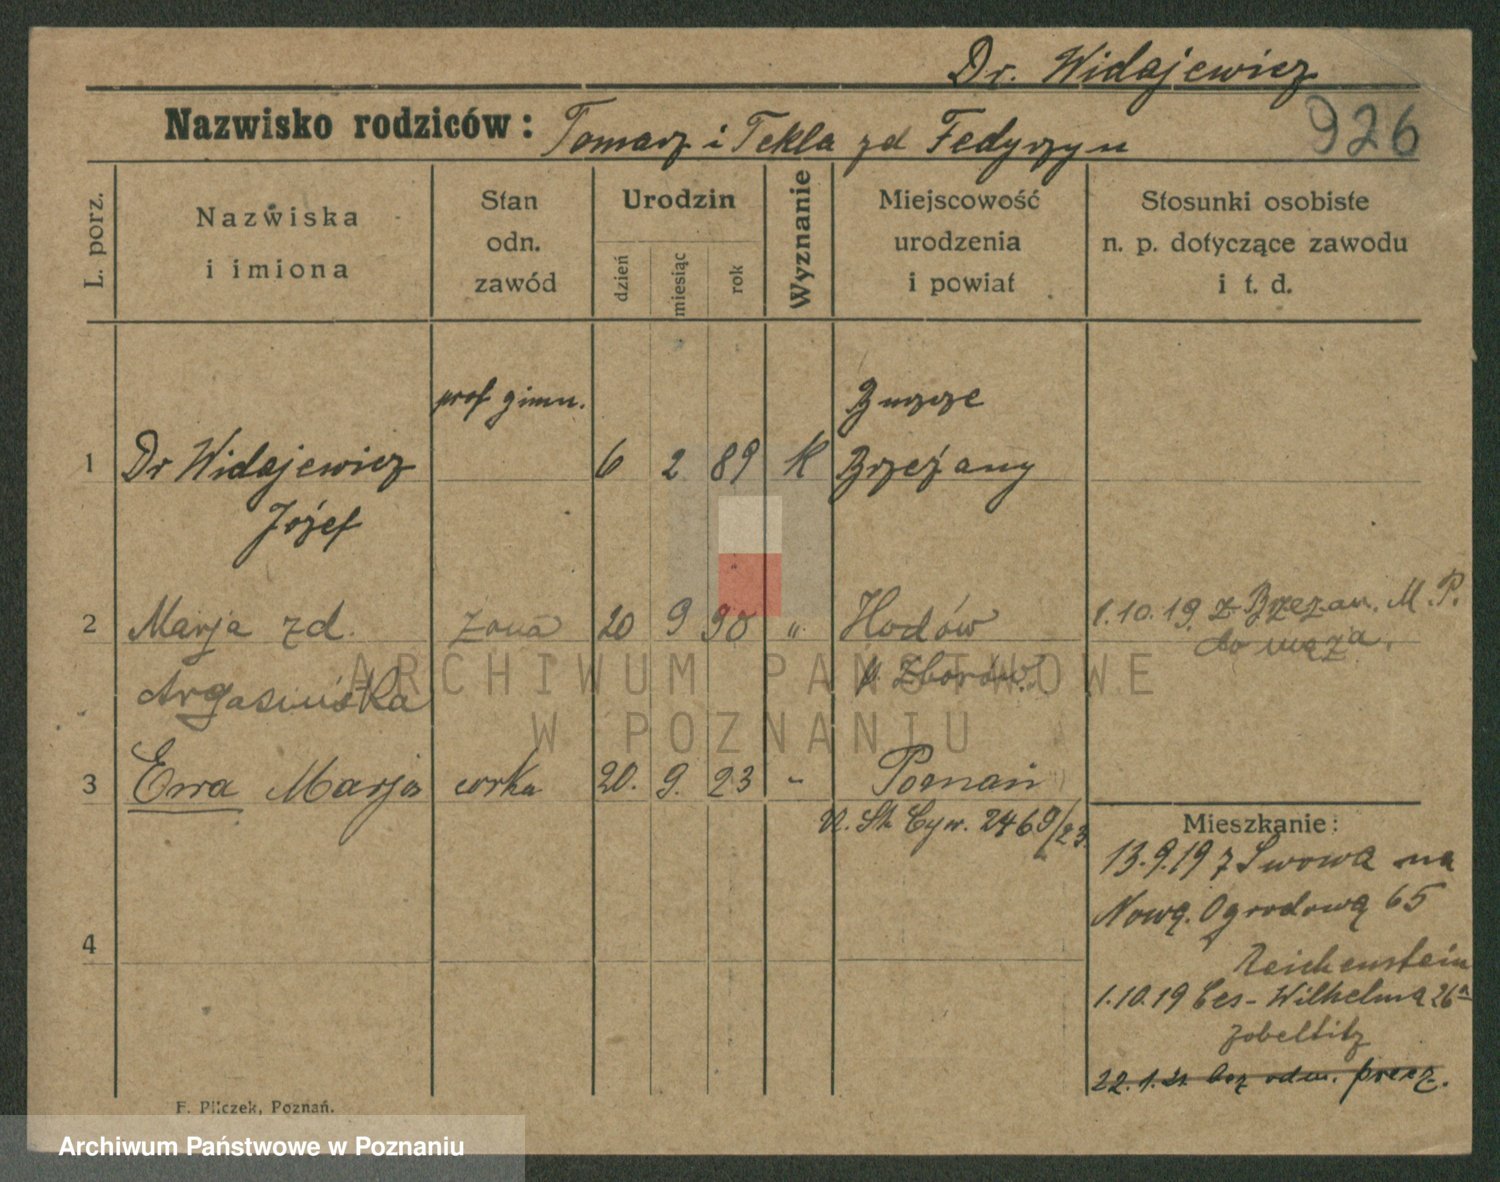 Dr. Widajewicz
926
Nazwisko rodziców: Tomasz i Tekla zd Fedyszyn
L. porz.
Nazwiska
i imiona
Stan
odn.
zawód
Urodzin
dzień
miesiąc
rok
Wyznanie
Miejscowość
urodzenia
i powiat
Stosunki osobiste
n. p. dotyczące zawodu
i t. d.
prof gimn.
1 Dr Widajewicz 6 2 89 K Brzeżany
Józef
2 Marja zd. żona 20 9 90 „ Hodów 1.10.19 z Brzeżan. M. P.
do męża.
Argasińska p. Zborów
3 Ewa Marja corka 20. 9. 23 - Poznań
U. St. Cyw. 2469/23
Mieszkanie:
13.9.19 z Lwowa na
Nową. Ogrodową 65
Reichenstein
4
1.10.19 Ces-Wilhelma 26a
Zobeltitz
22.1.21 bez odm. przez.
F. Pilczek, Poznań.
ARCHIWUM PAŃSTWOWE
W POZNANIU
Archiwum Państwowe w Poznaniu